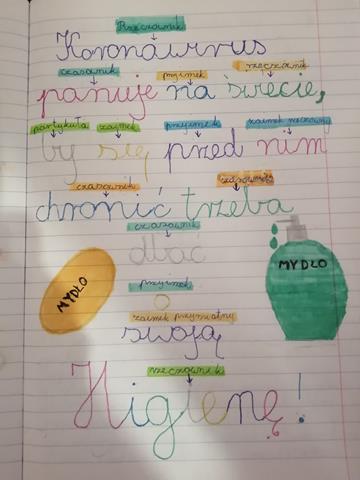 Rzeczownik
Koronawirus
czasownik przyimek rzeczownik
panuje na świecie,
partykuła zaimek przyimek zaimek rzeczowny
by się przed nim
czasownik czasownik
chronić trzeba
czasownik
dbać
MYDŁO MYDŁO
przyimek
o
zaimek przymiotny
swoją
rzeczownik
Higienę!